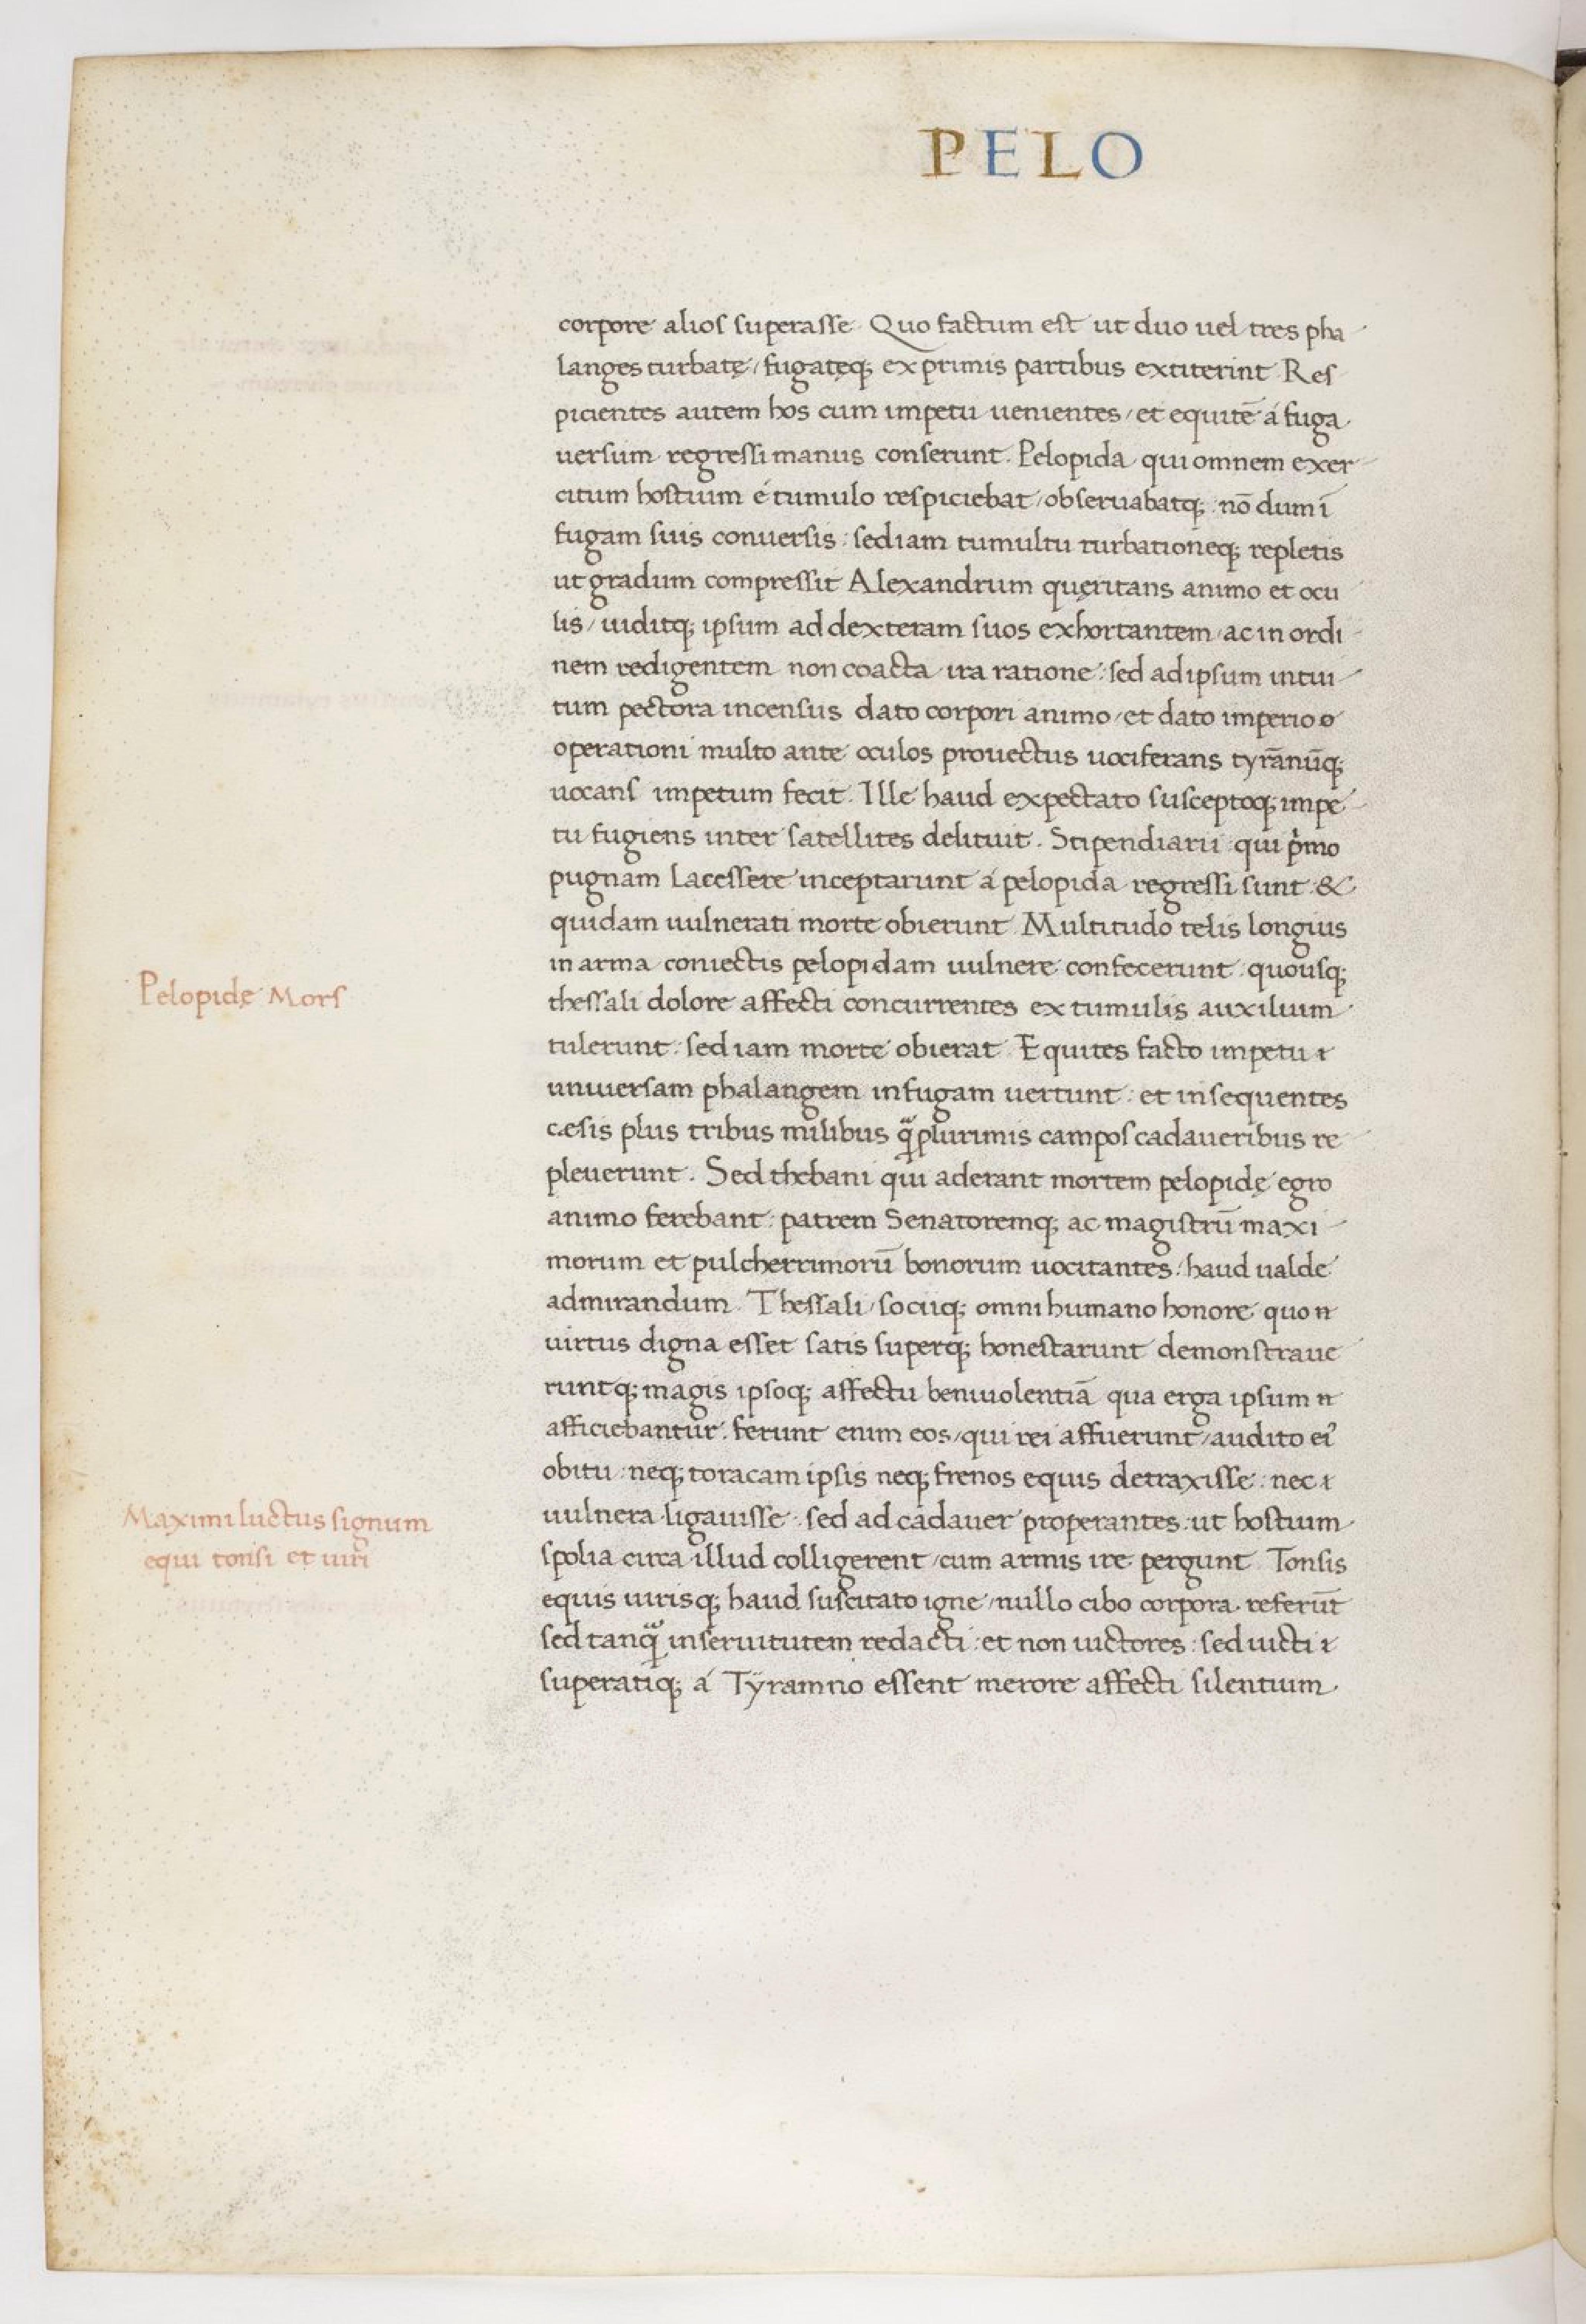 PELO
corpore alios superasse. Quo factum est ut duo uel tres pha
langes turbatę / fugatęq; ex primis partibus extiterint. Res
picientes autem hos cum impetu uenientes / et equitē á fuga
uersum regressi manus conserunt. Pelopida qui omnem exer
citum hostium é tumulo respiciebat / obseruabatq; nō dum ī
fugam suis conuersis: sed iam tumultu turbationeq; repletis
ut gradum compressit Alexandrum quęritans animo et ocu
lis / uiditq; ipsum ad dexteram suos exhortantem / ac in ordi
nem redigentem non coacta ira ratione: sed ad ipsum intui
tum pectora incensus dato corpori animo / et dato imperio o
operationi multo ante oculos prouectus uociferans tyrānūq;
uocans impetum fecit. Ille haud expectato susceptoq; impe
tu fugiens inter satellites delituit. Stipendiarii qui p̍mo
pugnam Lacessere inceptarunt á pelopida regressi sunt: &
quidam uulnerati morte obierunt. Multitudo telis longius
in arma coniectis pelopidam uulnere confecerunt: quousq;
Pelopidę Mors
thessali dolore affecti concurrentes ex tumulis auxilium
tulerunt: sed iam morte obierat. Equites facto impetu ı
uniuersam phalangem in fugam uertunt: et insequentes
cæsis plus tribus milibus ꝗ̃ plurimis campos cadaueribus re
pleuerunt. Sed thebani qui aderant mortem pelopidę egro
animo ferebant: patrem Senatoremq; ac magistrū maxi
morum et pulcherrimorū bonorum uocitantes: haud ualde
admirandum. Thessali / sociiq; omni humano honore quo n
uirtus digna esset satis superq; honestarunt demonstraue
runtq; magis ipsoq; affectu beniuolentiā qua erga ipsum n
afficiebantur. ferunt enim eos / qui rei affuerunt / audito ei᾽
obitu: neq; toracam ipsis neq; frenos equis detraxisse: nec ı
uulnera ligauisse: sed ad cadauer properantes: ut hostium
Maximi luctus signum
equi tonsi et uiri
spolia circa illud colligerent / cum armis ire pergunt. Tonsis
equis uirisq; haud suscitato igne / nullo cibo corpora referūt
sed tanꝗ̃ in seruitutem redacti: et non uictores: sed uicti ı
superatiq; á Tÿramno essent merore affecti silentium